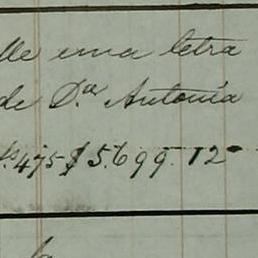 lle una letra
de D.ª Antonia
475 $ 5.699.12